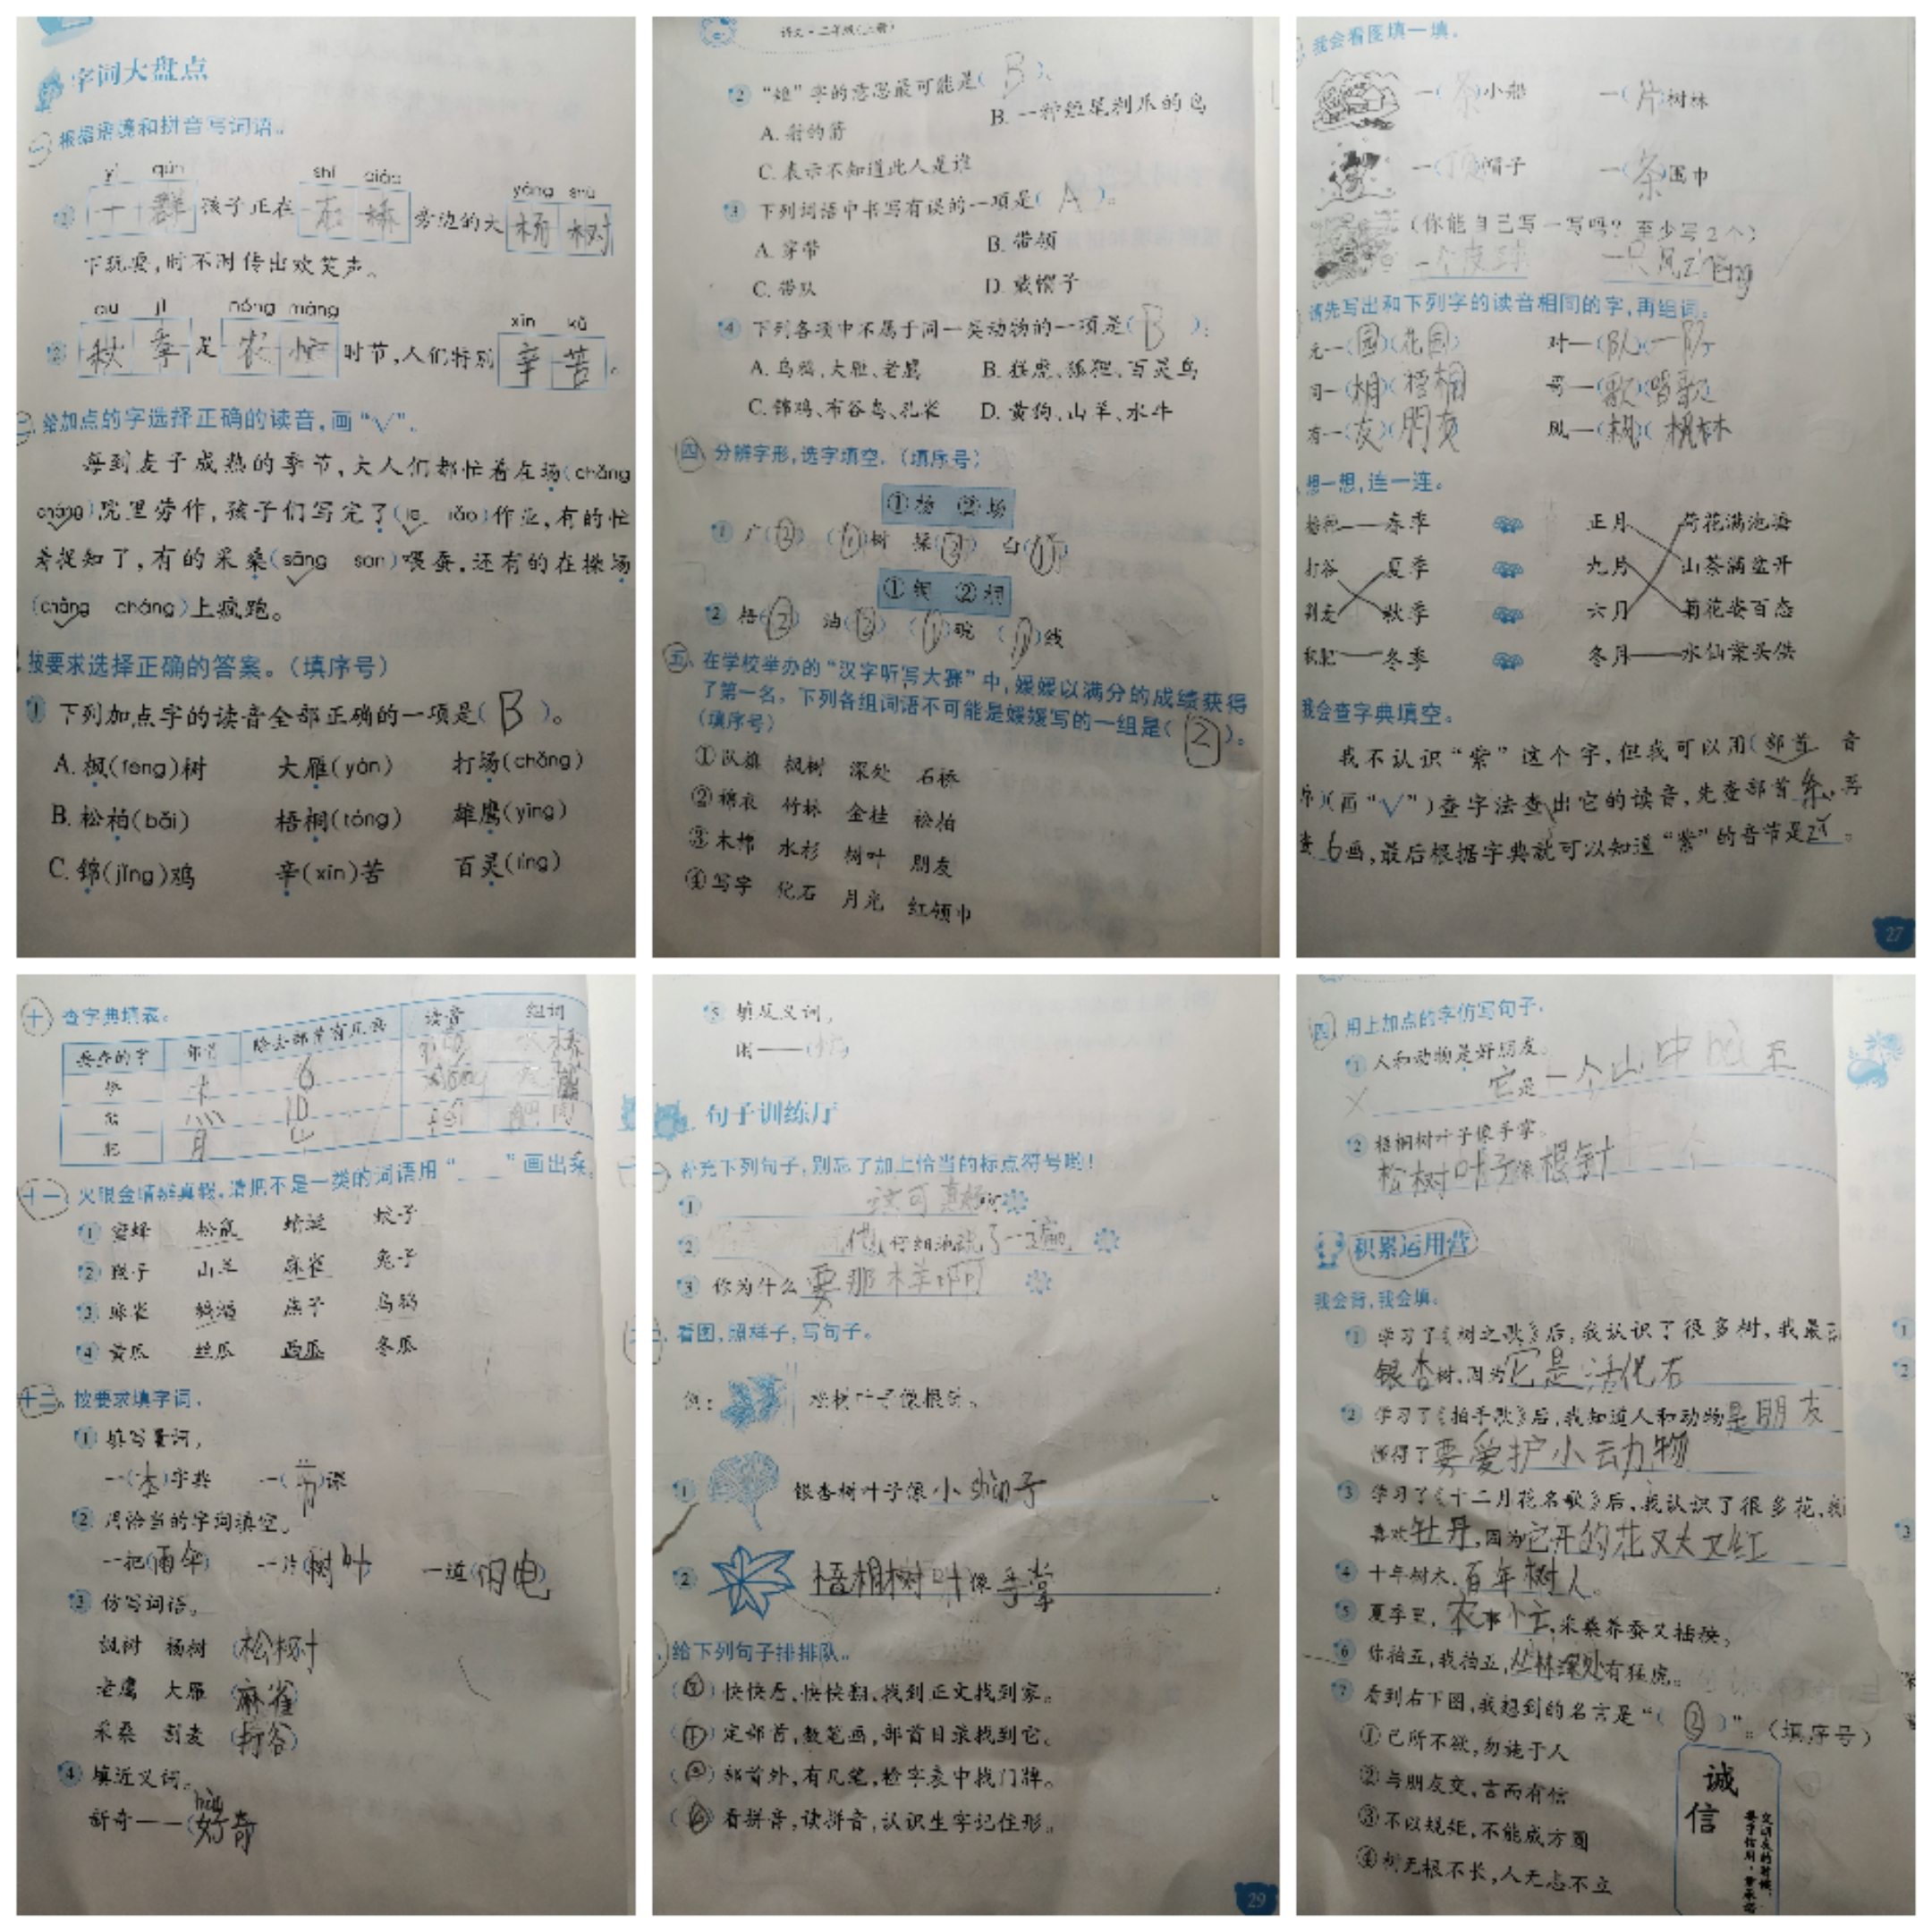 字词大盘点
一 根据语境和拼音写词语。
yì qún shí qiáo yáng shù
1 一群孩子正在石桥旁边的大杨树
下玩耍,时不时传出欢笑声。
qiū jì nóng máng xīn kǔ
2 秋季是农忙时节,人们特别辛苦。
二 给加点的字选择正确的读音,画“√”。
每到麦子成熟的季节,大人们都忙着在场(chǎng
cháng)院里劳作,孩子们写完了(le liǎo)作业,有的忙
着捉知了,有的采桑(sāng san)喂蚕,还有的在操场
(chǎng cháng)上疯跑。
按要求选择正确的答案。(填序号)
1 下列加点字的读音全部正确的一项是( B )。
A. 枫(fēng)树 大雁(yàn) 打场(chǎng)
B. 松柏(bǎi) 梧桐(tóng) 雄鹰(yīng)
C. 锦(jǐng)鸡 辛(xīn)苦 百灵(líng)
语文·二年级(上册)
2 “雉”字的意思最可能是( B )。
A. 射的箭 B. 一种短尾利爪的鸟
C. 表示不知道此人是谁
3 下列词语中书写有误的一项是( A )。
A. 穿带 B. 带领
C. 带队 D. 戴帽子
4 下列各项中不属于同一类动物的一项是( B )。
A. 乌鸦、大雁、老鹰 B. 猛虎、狐狸、百灵鸟
C. 锦鸡、布谷鸟、孔雀 D. 黄狗、山羊、水牛
四 分辨字形,选字填空。(填序号)
①杨 ②场
1 广(2) (1)树 操(2) 白(1)
①铜 ②桐
2 梧(2) 油(2) (1)碗 (1)线
五、在学校举办的“汉字听写大赛”中,媛媛以满分的成绩获得
了第一名。下列各组词语不可能是媛媛写的一组是( 2 )。
(填序号)
①队旗 枫树 深处 石桥
②棉衣 竹林 金桂 松柏
③木棉 水杉 树叶 朋友
④写字 化石 月光 红领巾
我会看图填一填。
一(条)小船 一(片)树林
一(顶)帽子 一(条)围巾
(你能自己写一写吗?至少写2个)
一个皮球 一只风zhēng
请先写出和下列字的读音相同的字,再组词。
元—(园)(花园) 对—(队)(一队)
同—(桐)(梧桐) 哥—(歌)(唱歌)
有—(友)(朋友) 风—(枫)(枫林)
想一想,连一连。
春季 正月 荷花满池塘
打谷 夏季 九月 山茶满盆开
割麦 秋季 六月 菊花姿百态
冬季 冬月 水仙案头供
我会查字典填空。
我不认识“紫”这个字,但我可以用(部首 音
序)(画“√”)查字法查出它的读音,先查部首糸,再
查6画,最后根据字典就可以知道“紫”的音节是zǐ。
27
十 查字典填表。
要查的字 部首 除去部首有几画 读音 组词
桥 木 6
熊 灬 10
肥 月 4
十一、火眼金睛辨真假,请把不是一类的词语用“____”画出来。
1 蜜蜂 松鼠 蜻蜓 蚊子
2 猴子 山羊 麻雀 兔子
3 麻雀 鹅 燕子 乌鸦
4 黄瓜 丝瓜 西瓜 冬瓜
十二、按要求填字词。
1 填写量词。
一(本)字典 一(节)课
2 用恰当的字词填空。
一把(雨伞) 一片(树叶) 一道(闪电)
3 仿写词语。
枫树 杨树 (松树)
老鹰 大雁 (麻雀)
采桑 割麦 (打谷)
4 填近义词。
hào
新奇——(好奇)
5 填反义词。
闲——(忙)
句子训练厅
一、补充下列句子,别忘了加上恰当的标点符号哟!
1 这可真好
2 他仔细地说了一遍
3 你为什么要那样啊
二、看图,照样子,写句子。
例: 松树叶子像根针。
1 银杏树叶子像小扇子。
2 梧桐树叶像手掌。
给下列句子排排队。
快快看,快快翻,找到正文找到家。
定部首,数笔画,部首目录找到它。
部首外,有几笔,检字表中找门牌。
看拼音,读拼音,认识生字记住形。
29
四、用上加点的字仿写句子。
1 人和动物是好朋友。
它是一个山中bà王
2 梧桐树叶子像手掌。
松树叶子像根针
积累运用营
我会背,我会填。
1 学习了《树之歌》后,我认识了很多树,我最
银杏树,因为它是活化石
2 学习了《拍手歌》后,我知道人和动物是朋友
懂得了要爱护小动物
3 学习了《十二月花名歌》后,我认识了很多花,我
喜欢牡丹,因为它开的花又大又红
4 十年树木,百年树人。
5 夏季里,农事忙,采桑养蚕又插秧。
6 你拍五,我拍五,丛林深处有猛虎。
7 看到右下图,我想到的名言是“( 2 )”。(填序号)
①己所不欲,勿施于人
②与朋友交,言而有信
③不以规矩,不能成方圆
④树无根不长,人无志不立
诚
信